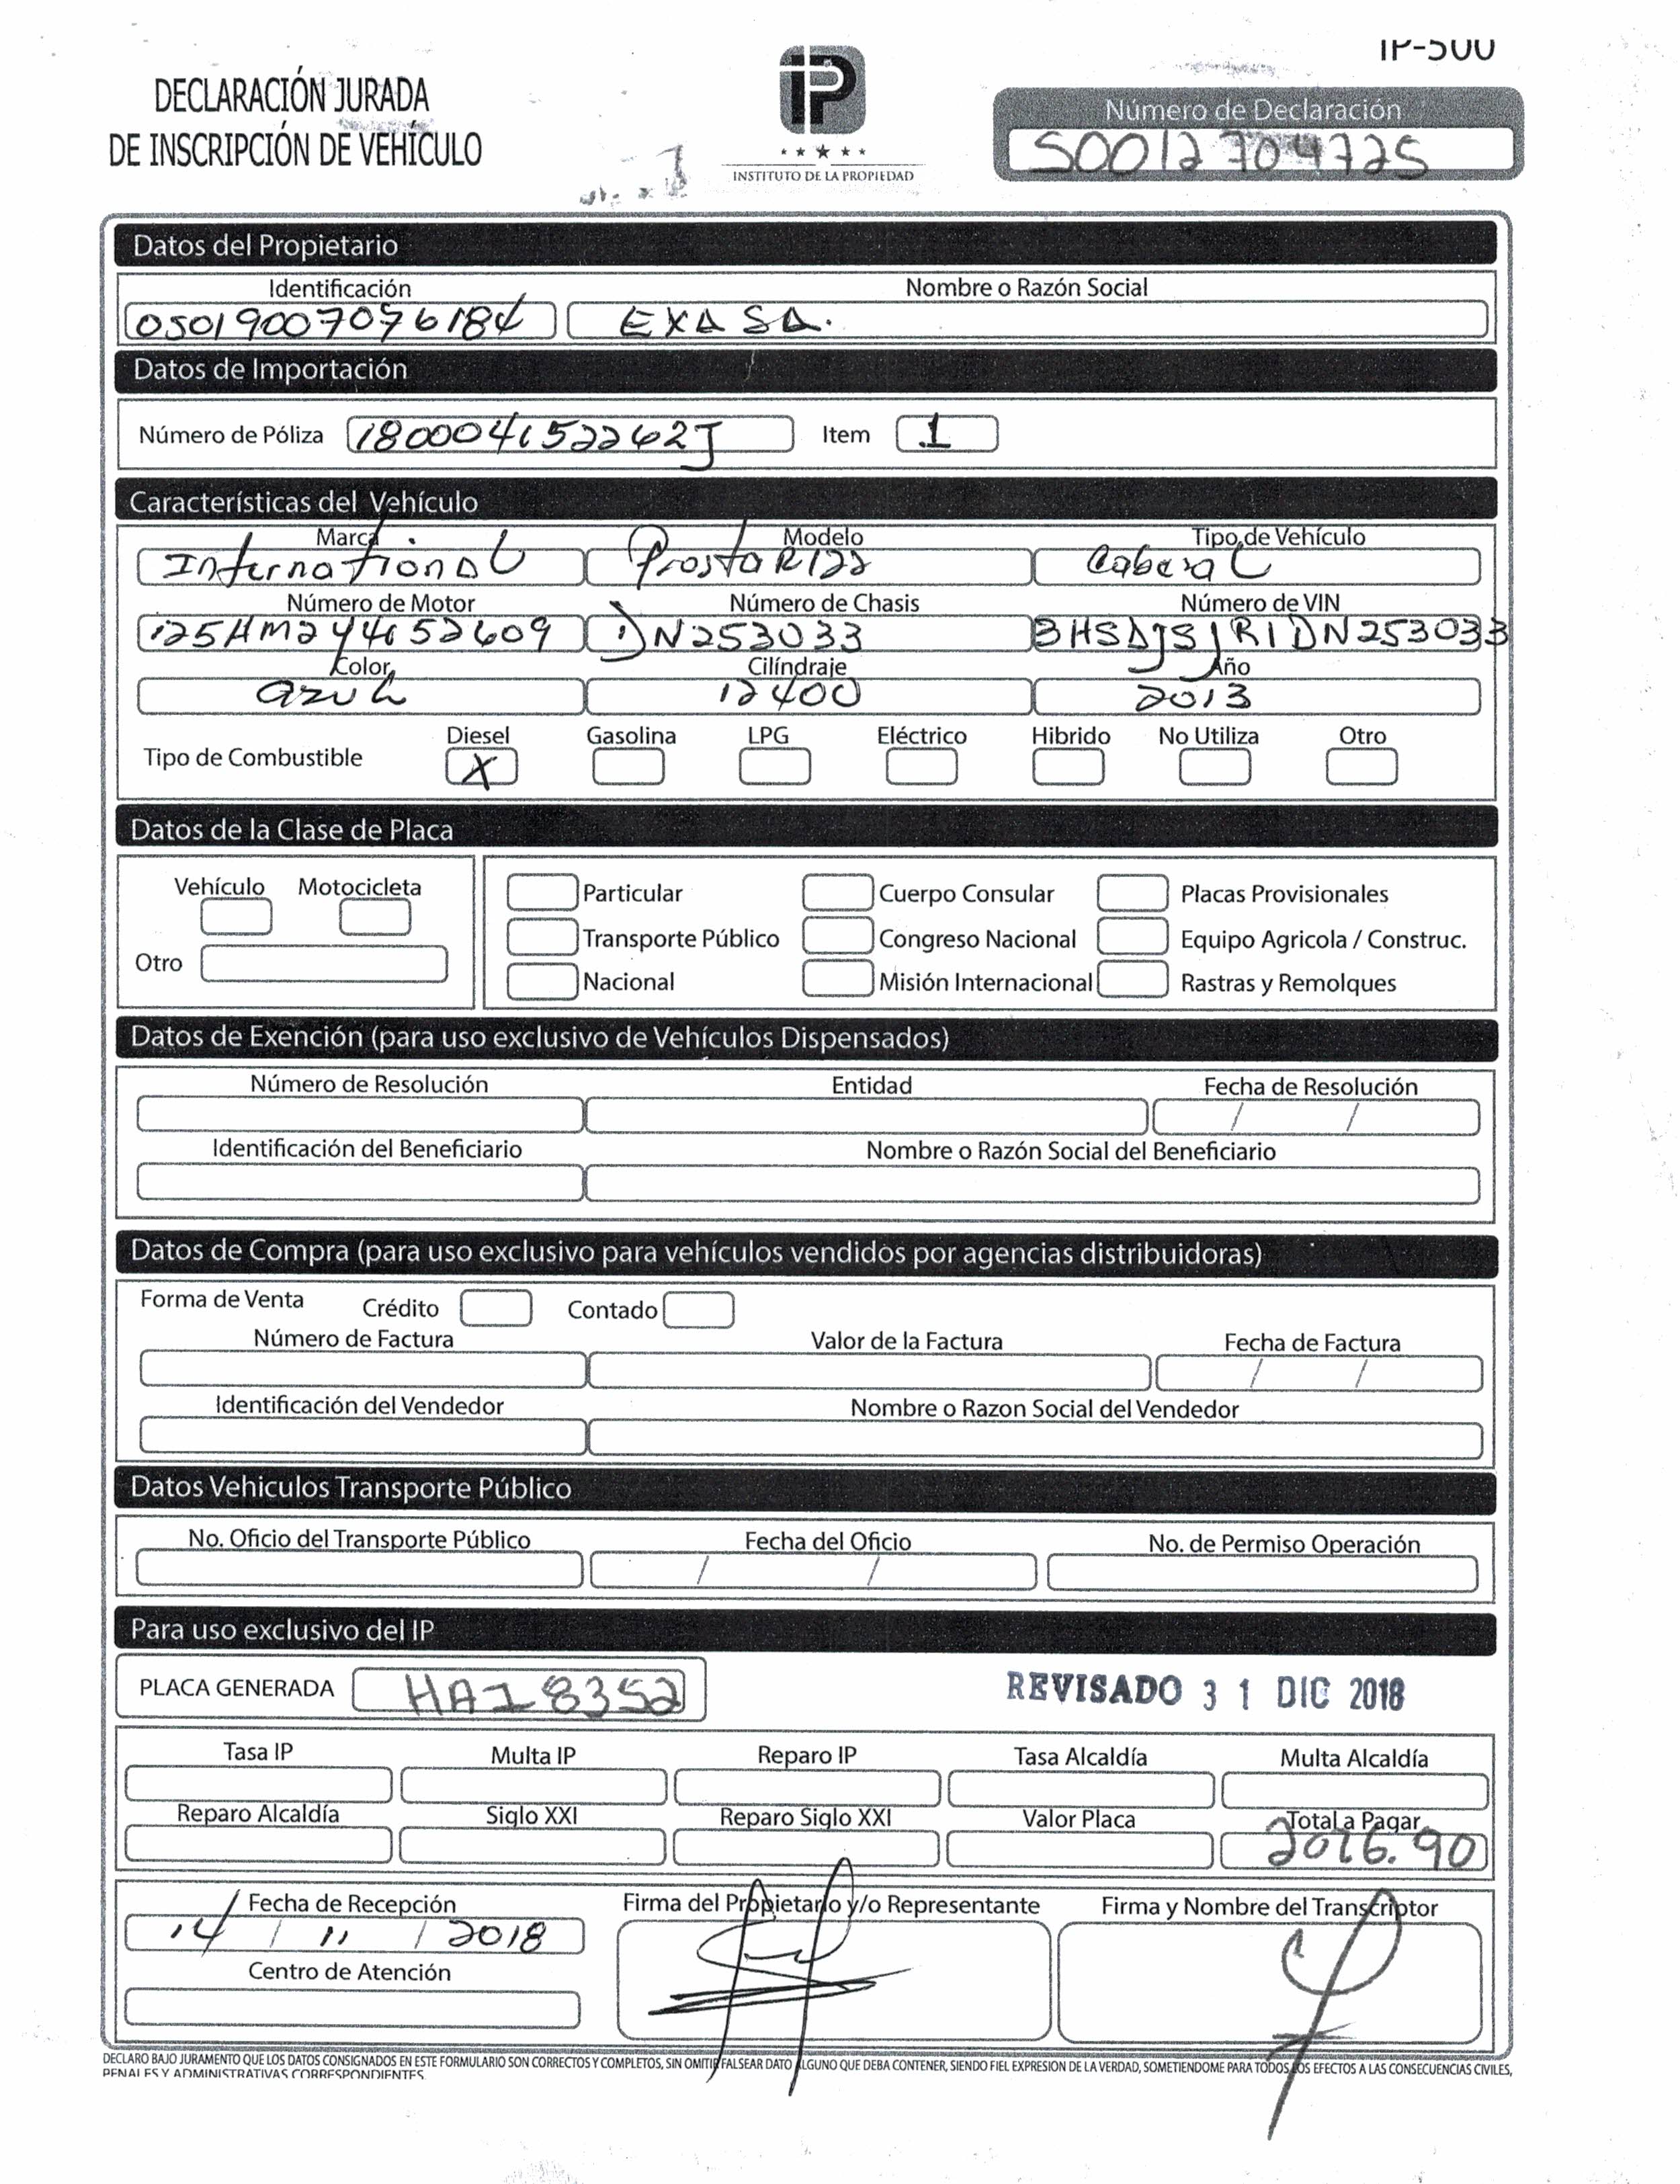 IP-500
DECLARACIÓN JURADA
DE INSCRIPCIÓN DE VEHÍCULO
iP
INSTITUTO DE LA PROPIEDAD
Número de Declaración
S0012704725
Datos del Propietario
Identificación Nombre o Razón Social
EXA SA.
Datos de Importación
Número de Póliza Item 1
Características del Vehículo
Marca Modelo Tipo de Vehículo
International Prostar122 Cabezal
Número de Motor Número de Chasis Número de VIN
DN253033 3HSDJSJR1DN253033
Color Cilíndraje Año
azul 12400 2013
Diesel Gasolina LPG Eléctrico Hibrido No Utiliza Otro
Tipo de Combustible X
Datos de la Clase de Placa
Vehículo Motocicleta Particular Cuerpo Consular Placas Provisionales
Transporte Público Congreso Nacional Equipo Agricola / Construc.
Otro Nacional Misión Internacional Rastras y Remolques
Datos de Exención (para uso exclusivo de Vehículos Dispensados)
Número de Resolución Entidad Fecha de Resolución
/ /
Identificación del Beneficiario Nombre o Razón Social del Beneficiario
Datos de Compra (para uso exclusivo para vehículos vendidos por agencias distribuidoras)
Forma de Venta Crédito Contado
Número de Factura Valor de la Factura Fecha de Factura
/ /
Identificación del Vendedor Nombre o Razon Social del Vendedor
Datos Vehiculos Transporte Público
No. Oficio del Transporte Público Fecha del Oficio No. de Permiso Operación
/ /
Para uso exclusivo del IP
PLACA GENERADA HAI8352 REVISADO 31 DIC 2018
Tasa IP Multa IP Reparo IP Tasa Alcaldía Multa Alcaldía
Reparo Alcaldía Siglo XXI Reparo Siglo XXI Valor Placa Total a Pagar
Fecha de Recepción Firma del Propietario y/o Representante Firma y Nombre del Transcriptor
14 / 11 / 2018
Centro de Atención
DECLARO BAJO JURAMENTO QUE LOS DATOS CONSIGNADOS EN ESTE FORMULARIO SON CORRECTOS Y COMPLETOS, SIN OMITIR FALSEAR DATO ALGUNO QUE DEBA CONTENER, SIENDO FIEL EXPRESION DE LA VERDAD, SOMETIENDOME PARA TODOS LOS EFECTOS A LAS CONSECUENCIAS CIVILES,
PENALES Y ADMINISTRATIVAS CORRESPONDIENTES